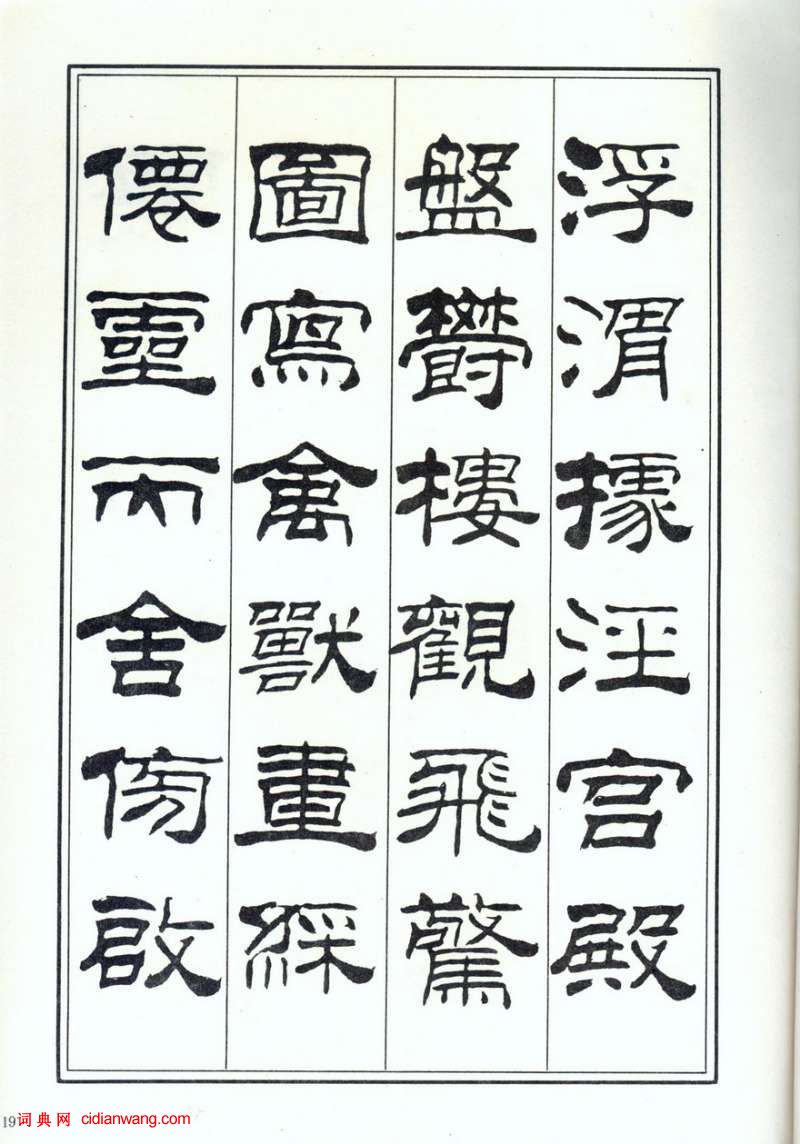 浮渭據涇宮殿
盤鬱樓觀飛驚
圖寫禽獸畫綵
僊靈丙舍傍啟
19
词典网 cidianwang.com